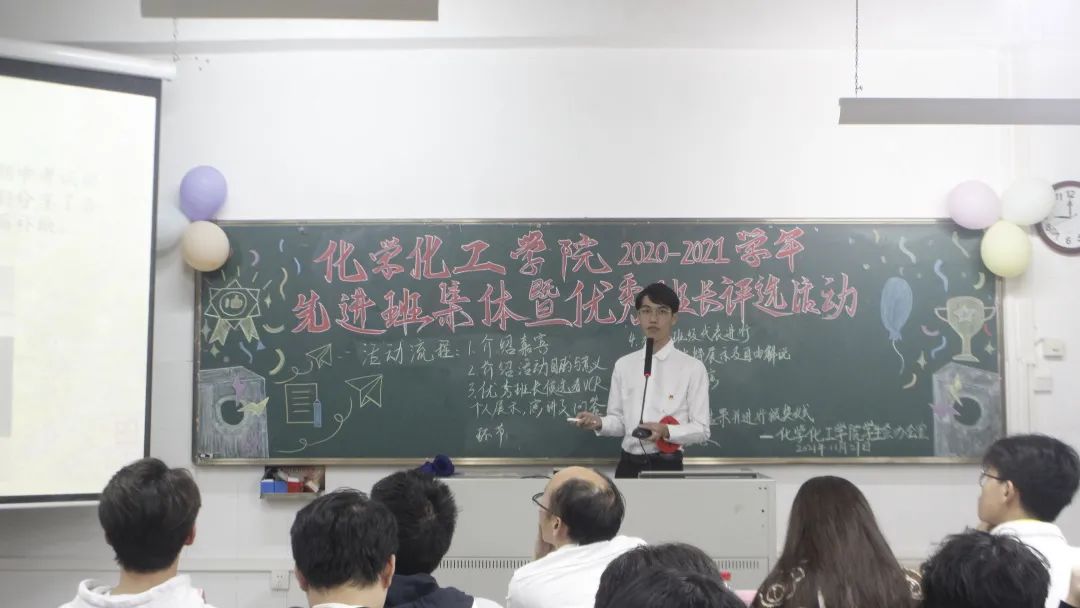 化学化工学院2020-2021学年
先进班集体暨优秀班长评选活动
活动流程:1.介绍嘉宾
2.介绍活动目的与意义
3.优秀班长候选者VCR
个人展示,演讲及问答
环节
4.
班级代表进行
展示及自由解说
果并进行颁奖仪式
—化学化工学院学生会办公室
2021年11月21日
11
12